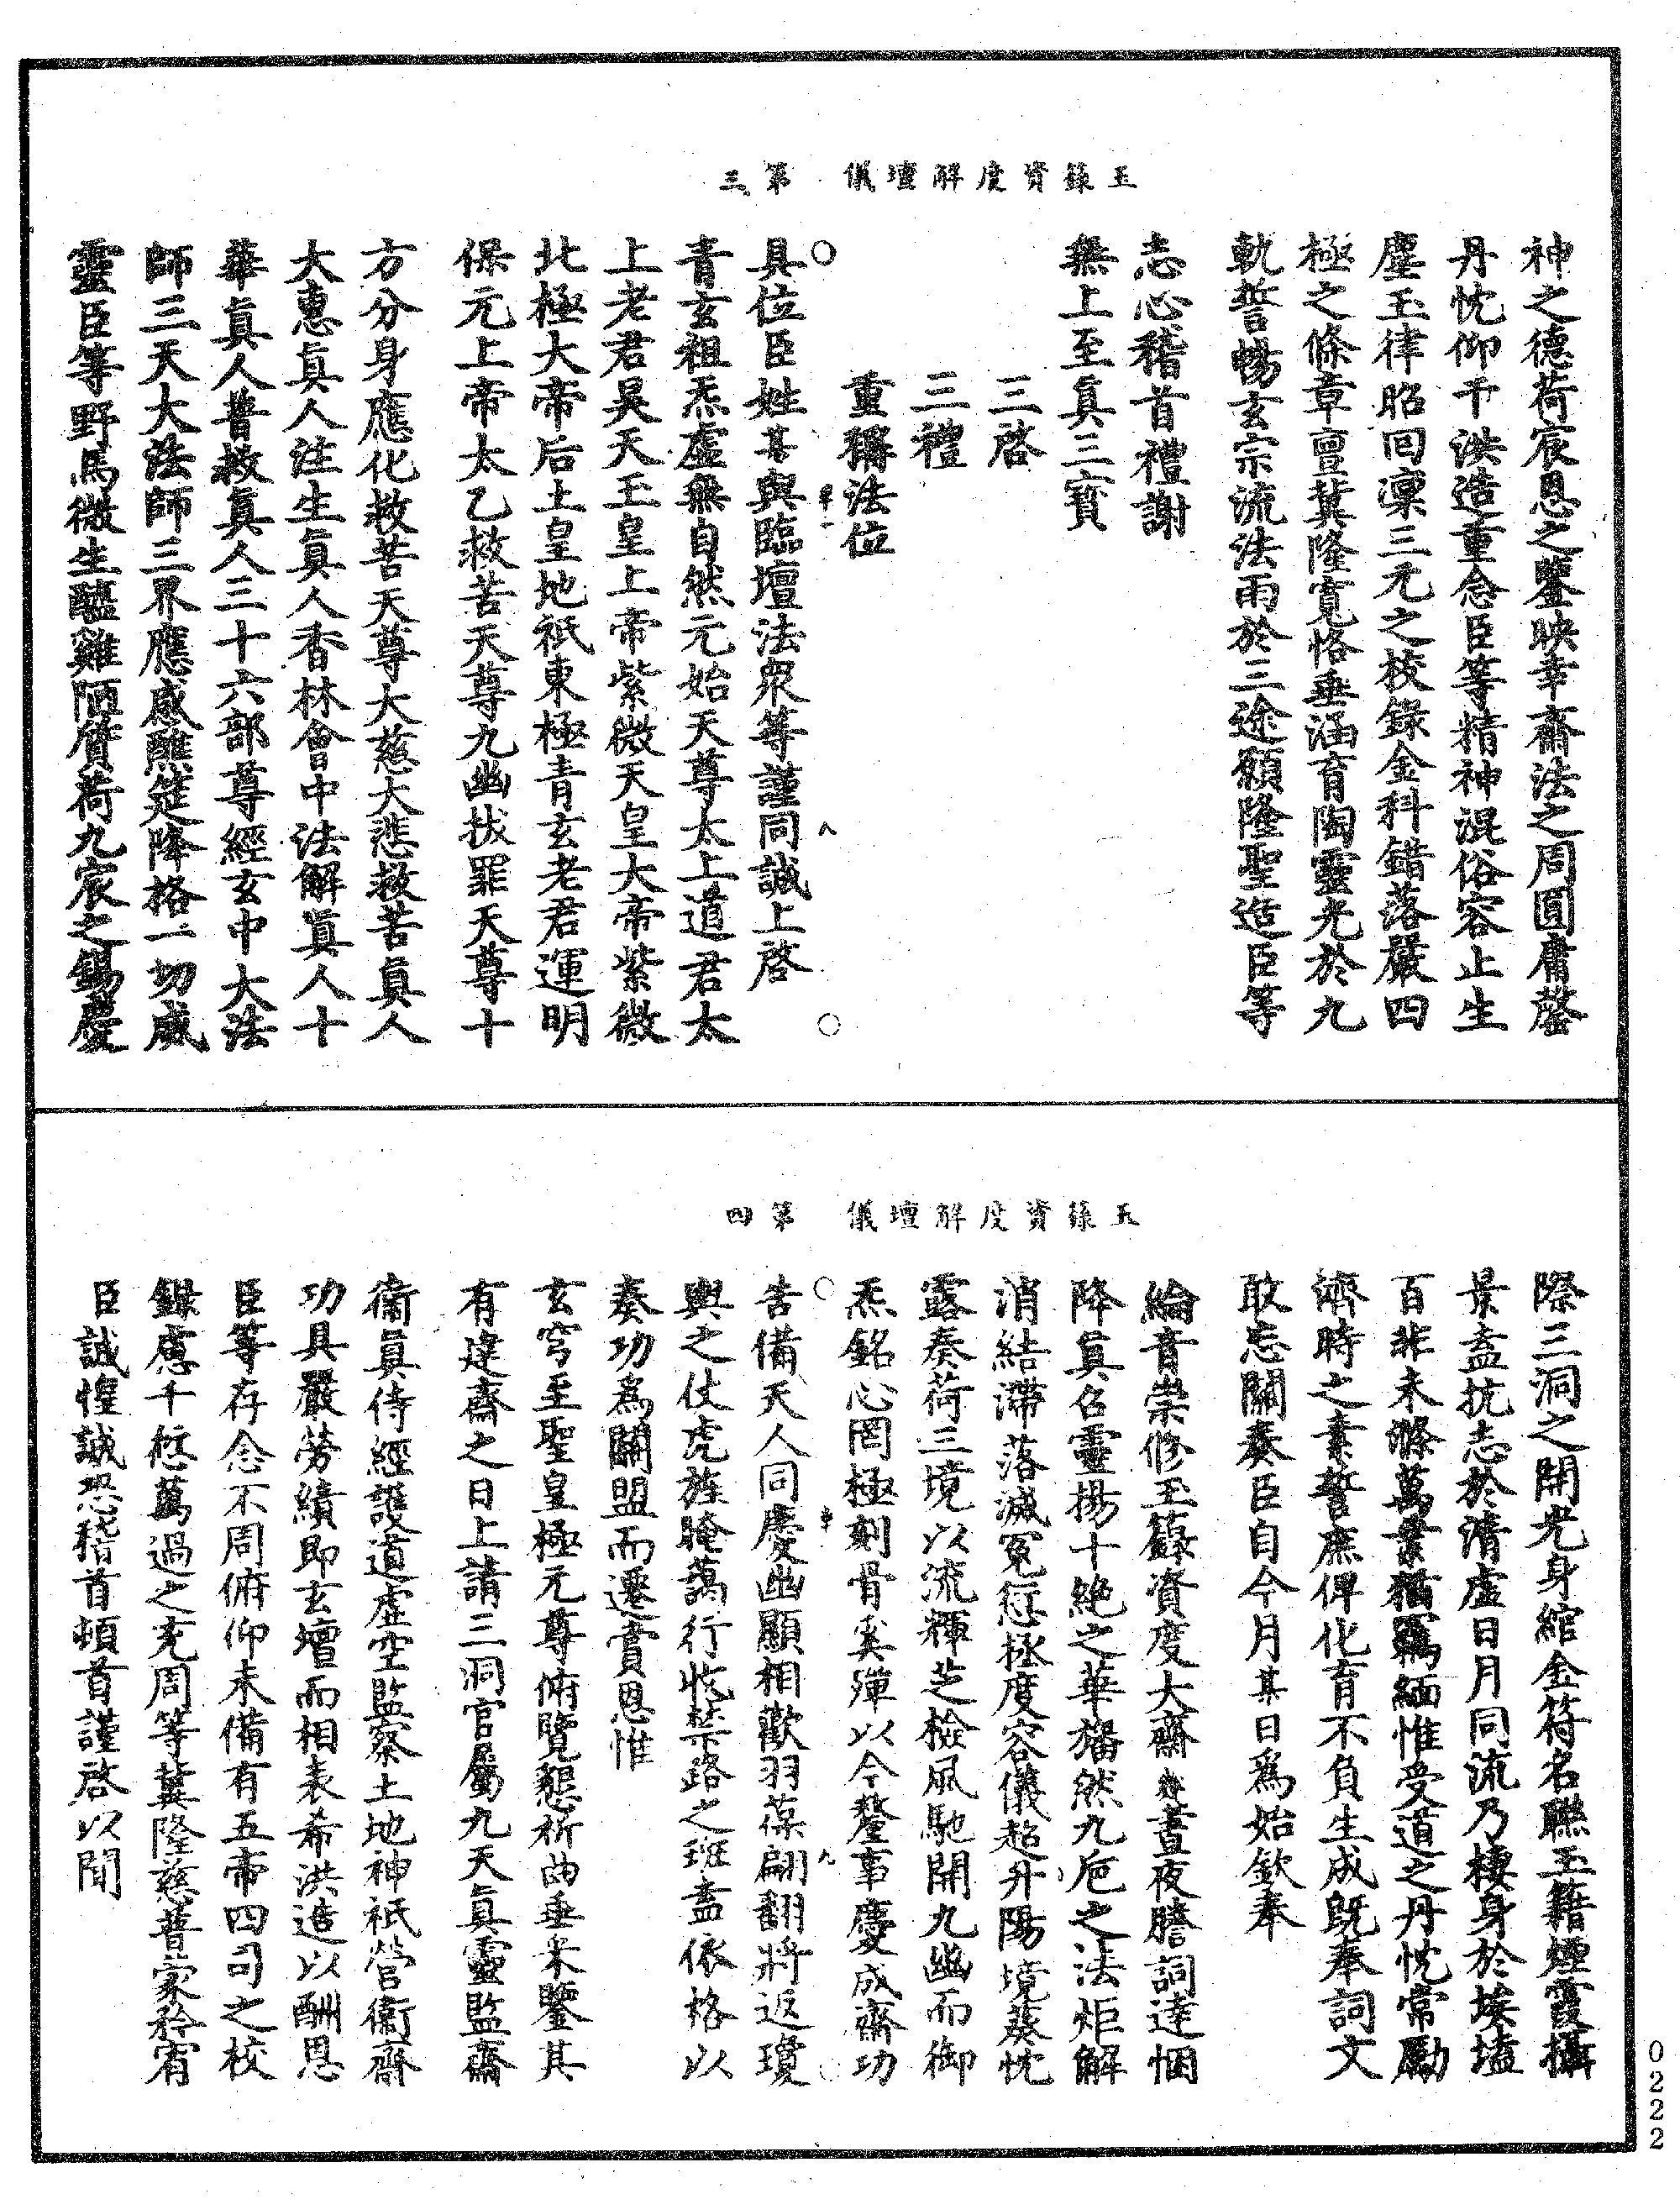 玉籙資度解壇儀　第三
神之德荷宸恩之鑒映幸齋法之周圓庸罄
丹忱仰干洪造重念臣等精神混俗容止生
塵玉律昭回凜三元之校錄金科錯落嚴四
極之條章亶冀隆寬恪垂涵育陶靈光於九
軌誓暢玄宗流法雨於三途願隆聖造臣等
志心稽首禮謝
無上至真三寶
三啓
三禮
重稱法位
具位臣姓某與臨壇法衆等謹同誠上啓
青玄祖炁虛無自然元始天尊太上道君太
上老君昊天玉皇上帝紫微天皇大帝紫微
北極大帝后土皇地祇東極青玄老君運明
保元上帝太乙救苦天尊九幽拔罪天尊十
方分身應化救苦天尊大慈大悲救苦真人
大惠真人注生真人香林會中法解真人十
華真人普救真人三十六部尊經玄中大法
師三天大法師三界應感醮筵降格一切威
靈臣等野馬微生醯雞陋質荷九宸之錫慶
玉籙資度解壇儀　第四
際三洞之開光身綰金符名聯玉籍煙霞攝
景盍抗志於清虛日月同流乃棲身於埃壒
百非未滌萬業猶羈緬惟受道之丹忱常勵
濟時之素誓庶俾化育不負生成既奉詞文
敢忘關奏臣自今月某日爲始欽奉
綸音崇修玉籙資度大齋幾晝夜謄詞達悃
降真召靈揚十絶之華旛然九巵之法炬解
消結滯落滅冤愆拯度容儀超升陽境葵忱
露奏荷三境以流輝芝檢風馳開九幽而御
炁銘心罔極刻骨奚殫以今釐事慶成齋功
告備天人同慶幽顯相歡羽葆翩翻將返瓊
輿之仗虎旌腌藹行收禁路之班盍依格以
奏功爲關盟而遷賞恩惟
玄穹至聖皇極元尊俯覽懇祈曲垂采鑒其
有建齋之日上請三洞官屬九天真靈監齋
衞真侍經護道虛空監察土地神祇營衞齋
功具嚴勞績即玄壇而相表希洪造以酬恩
臣等存念不周俯仰未備有五帝四司之校
錄慮千愆萬過之充周等冀隆慈普蒙矜宥
臣誠惶誠恐稽首頓首謹啓以聞
0222